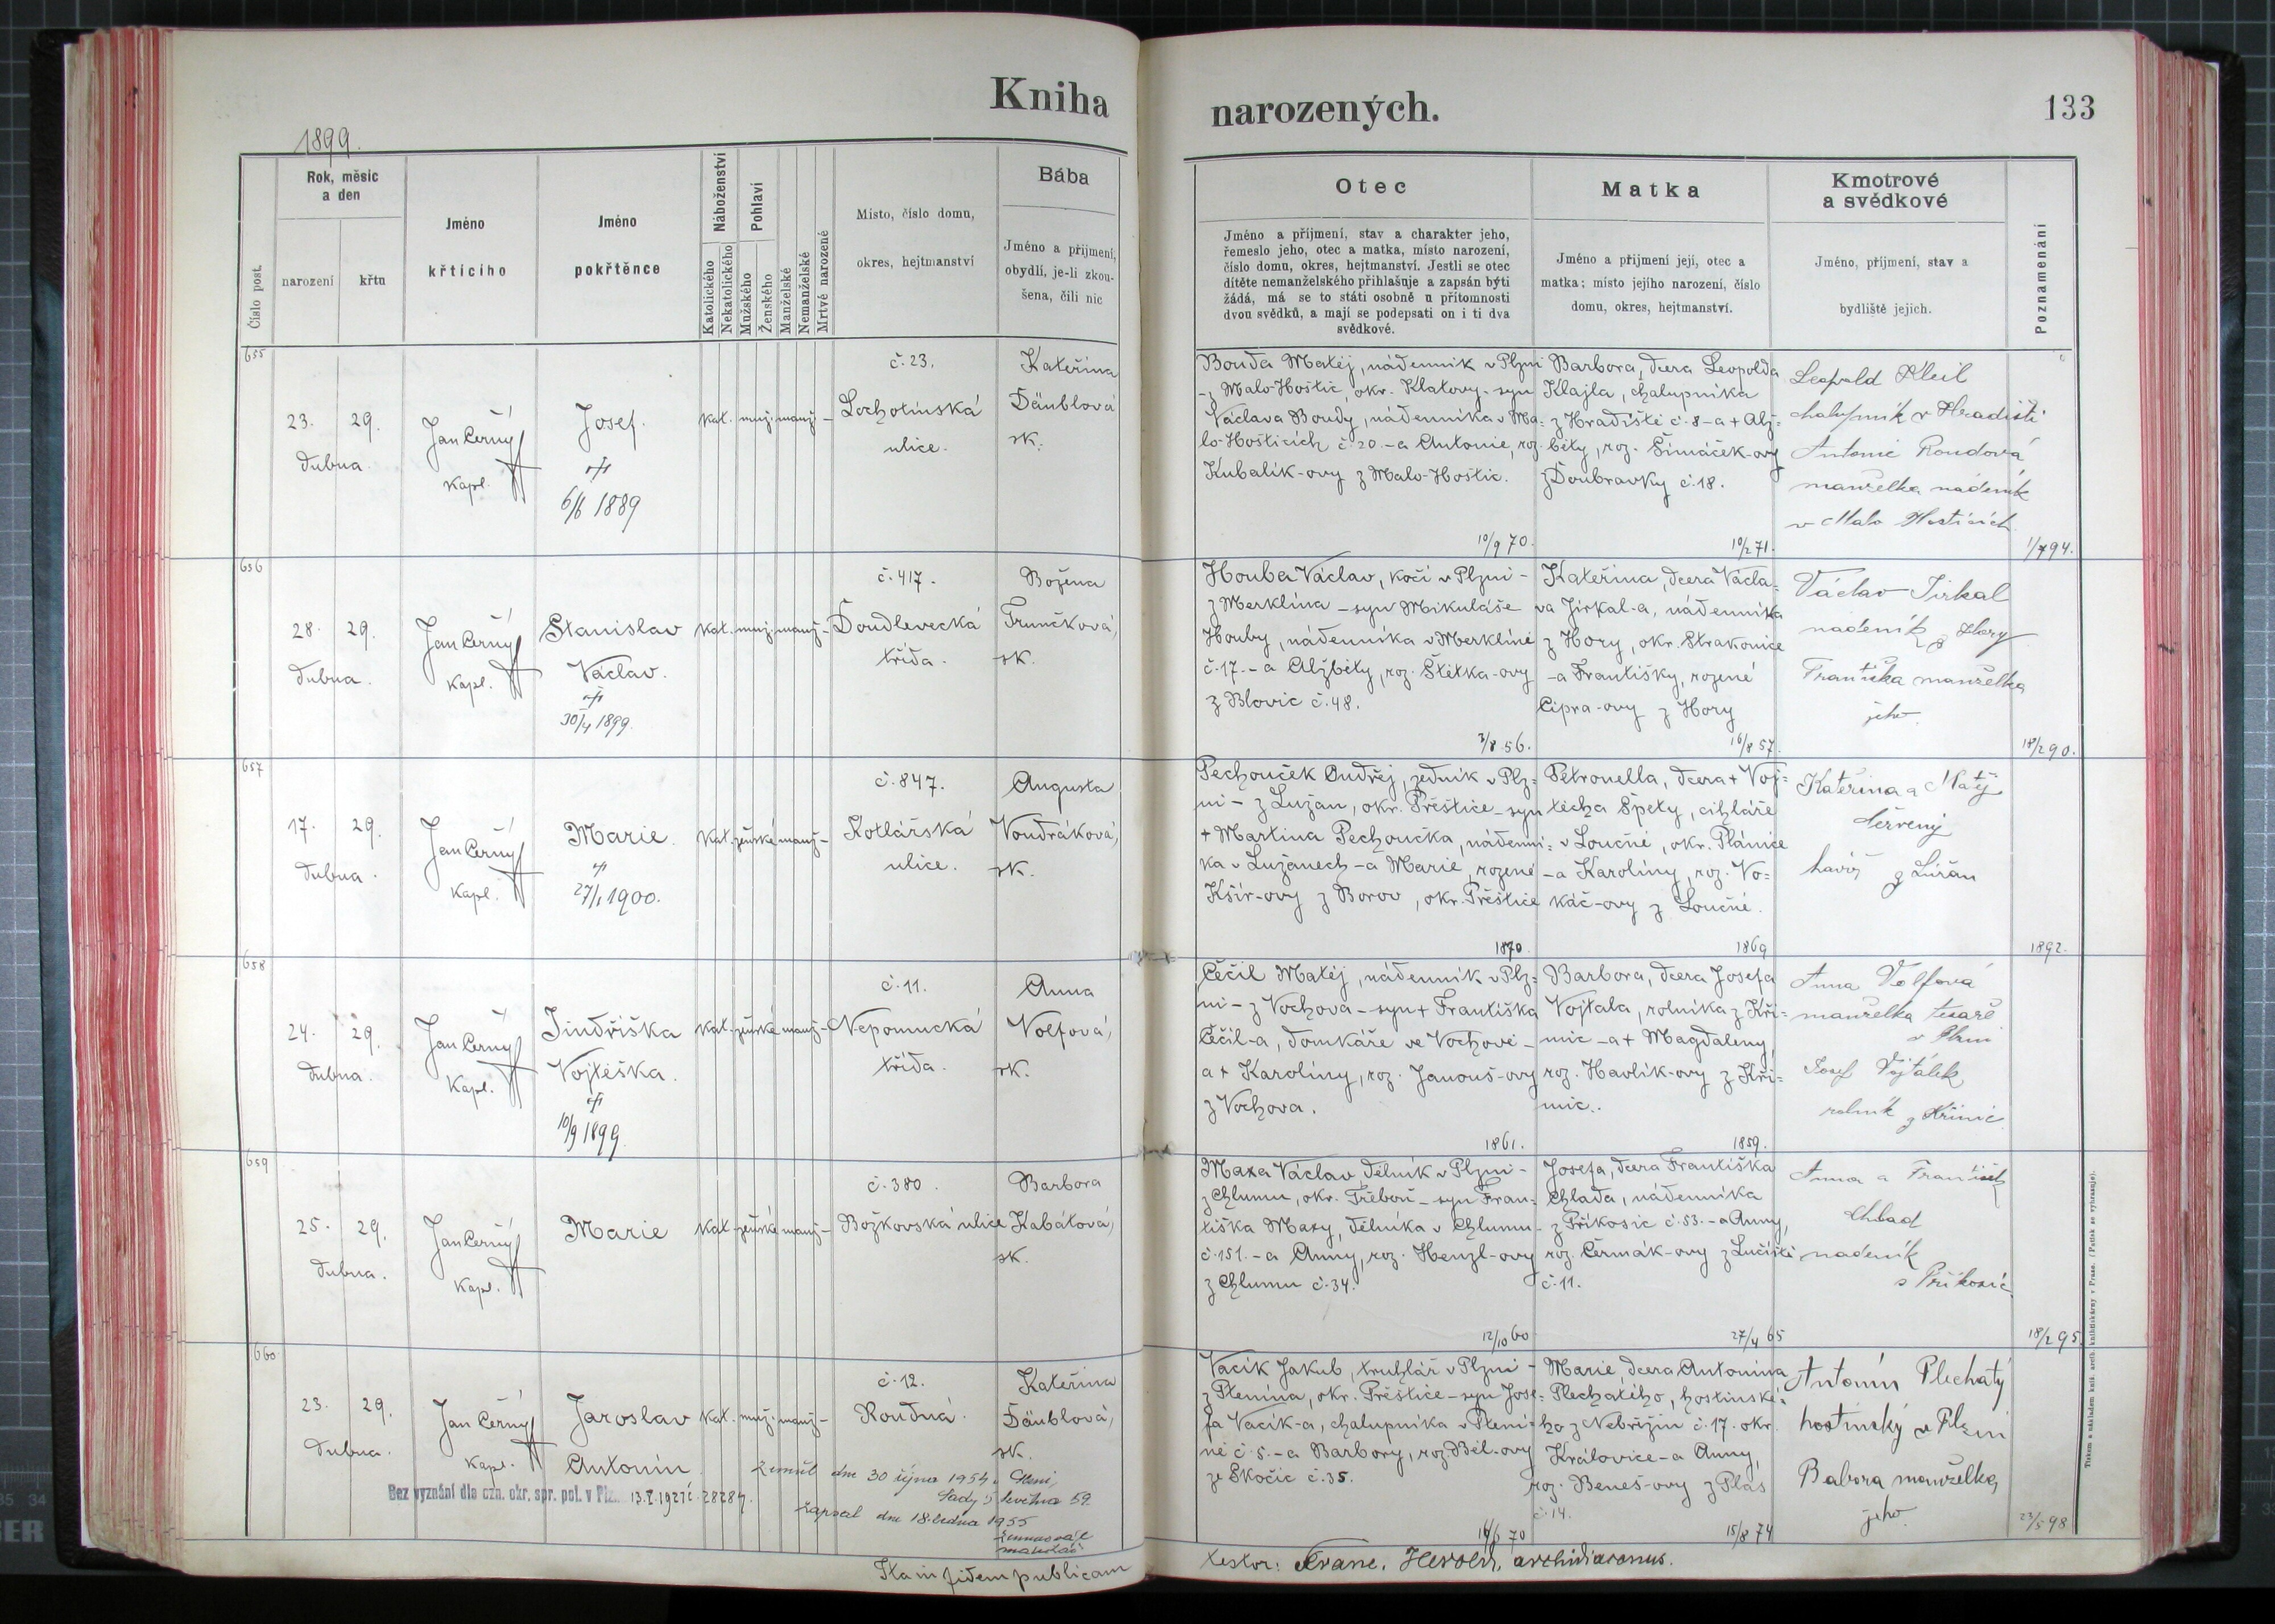 Kniha
narozených.
133
1899.
Číslo post.
Rok, měsíc
a den
narození
křtu
Jméno
křtícího
Jméno
pokřtěnce
Náboženství
Katolického
Nekatolického
Pohlaví
Mužského
Ženského
Manželské
Nemanželské
Mrtvě narozené
Místo, číslo domu,
okres, hejtmanství
Bába
Jméno a příjmení,
obydlí, je-li zkou-
šena, čili nic
Otec
Jméno a příjmení, stav a charakter jeho,
řemeslo jeho, otec a matka, místo narození,
číslo domu, okres, hejtmanství. Jestli se otec
dítěte nemanželského přihlašuje a zapsán býti
žádá, má se to státi osobně u přítomnosti
dvou svědků, a mají se podepsati on i ti dva
svědkové.
Matka
Jméno a příjmení její, otec a
matka; místo jejího narození, číslo
domu, okres, hejtmanství.
Kmotrové
a svědkové
Jméno, příjmení, stav a
bydliště jejich.
Poznamenání
655
23. 29.
dubna.
Jan Černý
kapl.
Josef.
6/6 1889
kat. muž. manž.-
č. 23.
Lochotínská
ulice.
Kateřina
Däublová
zk.
Bouda Matěj, nádenník v Plzni
- z Malo-Hoštic, okr. Klatovy - syn
Václava Boudy, nádenníka v Ma-
lo-Hošticích č. 20. - a Antonie, roz.
Kubalík-ovy z Malo-Hoštic.
10/9 70.
Barbora, dcera Leopolda
Klajla, chalupníka
z Hradiště č. 8 - a + Alž-
běty, roz. Šimáček-ovy
z Doubravky č. 18.
10/2 71.
Leopold Kleil
chalupník v Hradišti
Antonie Boudová
manželka nádeník
v Malo Hosticích
1/7 94.
656
28. 29.
dubna.
Jan Černý
kapl.
Stanislav
Václav.
30/4 1899.
kat. muž. manž.-
č. 417.
Doudlevecká
třída.
Božena
Trunčková,
zk.
Houba Václav, kočí v Plzni -
z Merklína - syn Mikuláše
Houby, nádenníka v Merklíně
č. 17. - a Alžběty, roz. Štětka-ovy
z Blovic č. 48.
3/8 56.
Kateřina, dcera Václa-
va Jirkal-a, nádenníka
z Hory, okr. Strakonice
- a Františky, rozené
Cipra-ovy z Hory
16/8 57.
Václav Jirkal
nadeník z Hory
Františka manželka
jeho.
18/2 90.
657
17. 29.
dubna.
Jan Černý
kapl.
Marie.
27/1 1900.
kat. ženské manž.-
č. 847.
Kotlářská
ulice.
Augusta
Vondráková,
zk.
Pechouček Ondřej, zedník v Plz-
ni - z Lužan, okr. Přeštice - syn
+ Martina Pechoučka, nádenní-
ka v Lužanech - a Marie, rozené
Kšír-ovy z Borov, okr. Přeštice
1870.
Petronella, dcera + Voj-
těcha Špety, cihláře
v Loučné, okr. Plánice
- a Karolíny, roz. Vo-
káč-ovy z Loučné.
1869
Kateřina a Matěj
Červený
havíř z Lužan
1892.
658
24. 29.
dubna.
Jan Černý
kapl.
Jindřiška
Vojtěška.
10/9 1899.
kat. ženské manž.-
č. 11.
Nepomucká
třída.
Anna
Volfová,
zk.
Čečil Matěj, nádenník v Plz-
ni - z Vochova - syn + Františka
Čečil-a, domkáře ve Vochově -
a + Karolíny, roz. Janouš-ovy
z Vochova.
1861.
Barbora, dcera Josefa
Vojtala, rolníka z Kři-
mic - a + Magdaleny,
roz. Havlík-ovy z Kři-
mic.
1859.
Anna Volfová
manželka tesaře
v Plzni
Josef Vojtálek
rolník z Křimic
659
25. 29.
dubna.
Jan Černý
kapl.
Marie
kat. ženské manž.-
č. 380.
Božkovská ulice
Barbora
Kabátová,
zk.
Maxa Václav dělník v Plzni -
z Chlumu, okr. Třeboň - syn Fran-
tiška Maxy, dělníka v Chlumu
č. 151. - a Anny, roz. Henzl-ovy
z Chlumu č. 34.
12/10 60
Josefa, dcera Františka
Chlada, nádenníka
z Příkosic č. 53. - a Anny,
roz. Čermák-ovy z Lučiště
č. 11.
27/4 65
Anna a František
Chlad
nadeník
z Příkosic
18/2 95.
660
23. 29.
dubna.
Jan Černý
kapl.
Jaroslav
Antonín.
kat. muž. manž.-
č. 12.
Roudná.
Kateřina
Däublová,
zk.
Vacík Jakub, truhlář v Plzni -
z Ptenína, okr. Přeštice - syn Jose-
fa Vacík-a, chalupníka v Ptení-
ně č. 5. - a Barbory, roz. Běl-ovy
ze Skočic č. 35.
14/6 70
Marie, dcera Antonína
Plechatého, hostinské-
ho z Nebřezin č. 17. okr.
Královice - a Anny,
roz. Beneš-ovy z Plas
č. 14.
15/8 74
Antonín Plechatý
hostinský v Plzni
Babora manželka
jeho.
23/5 98.
Bez vyznání dle ozn. okr. spr. pol. v Plz. 13.I.1921 č. 28284.
zemřel dne 30 října 1954. Plzni,
Sady 5 května 59.
zapsal dne 18. ledna 1955
Ita in fidem publicam
testor: Franc. Herold, archidiaconus.